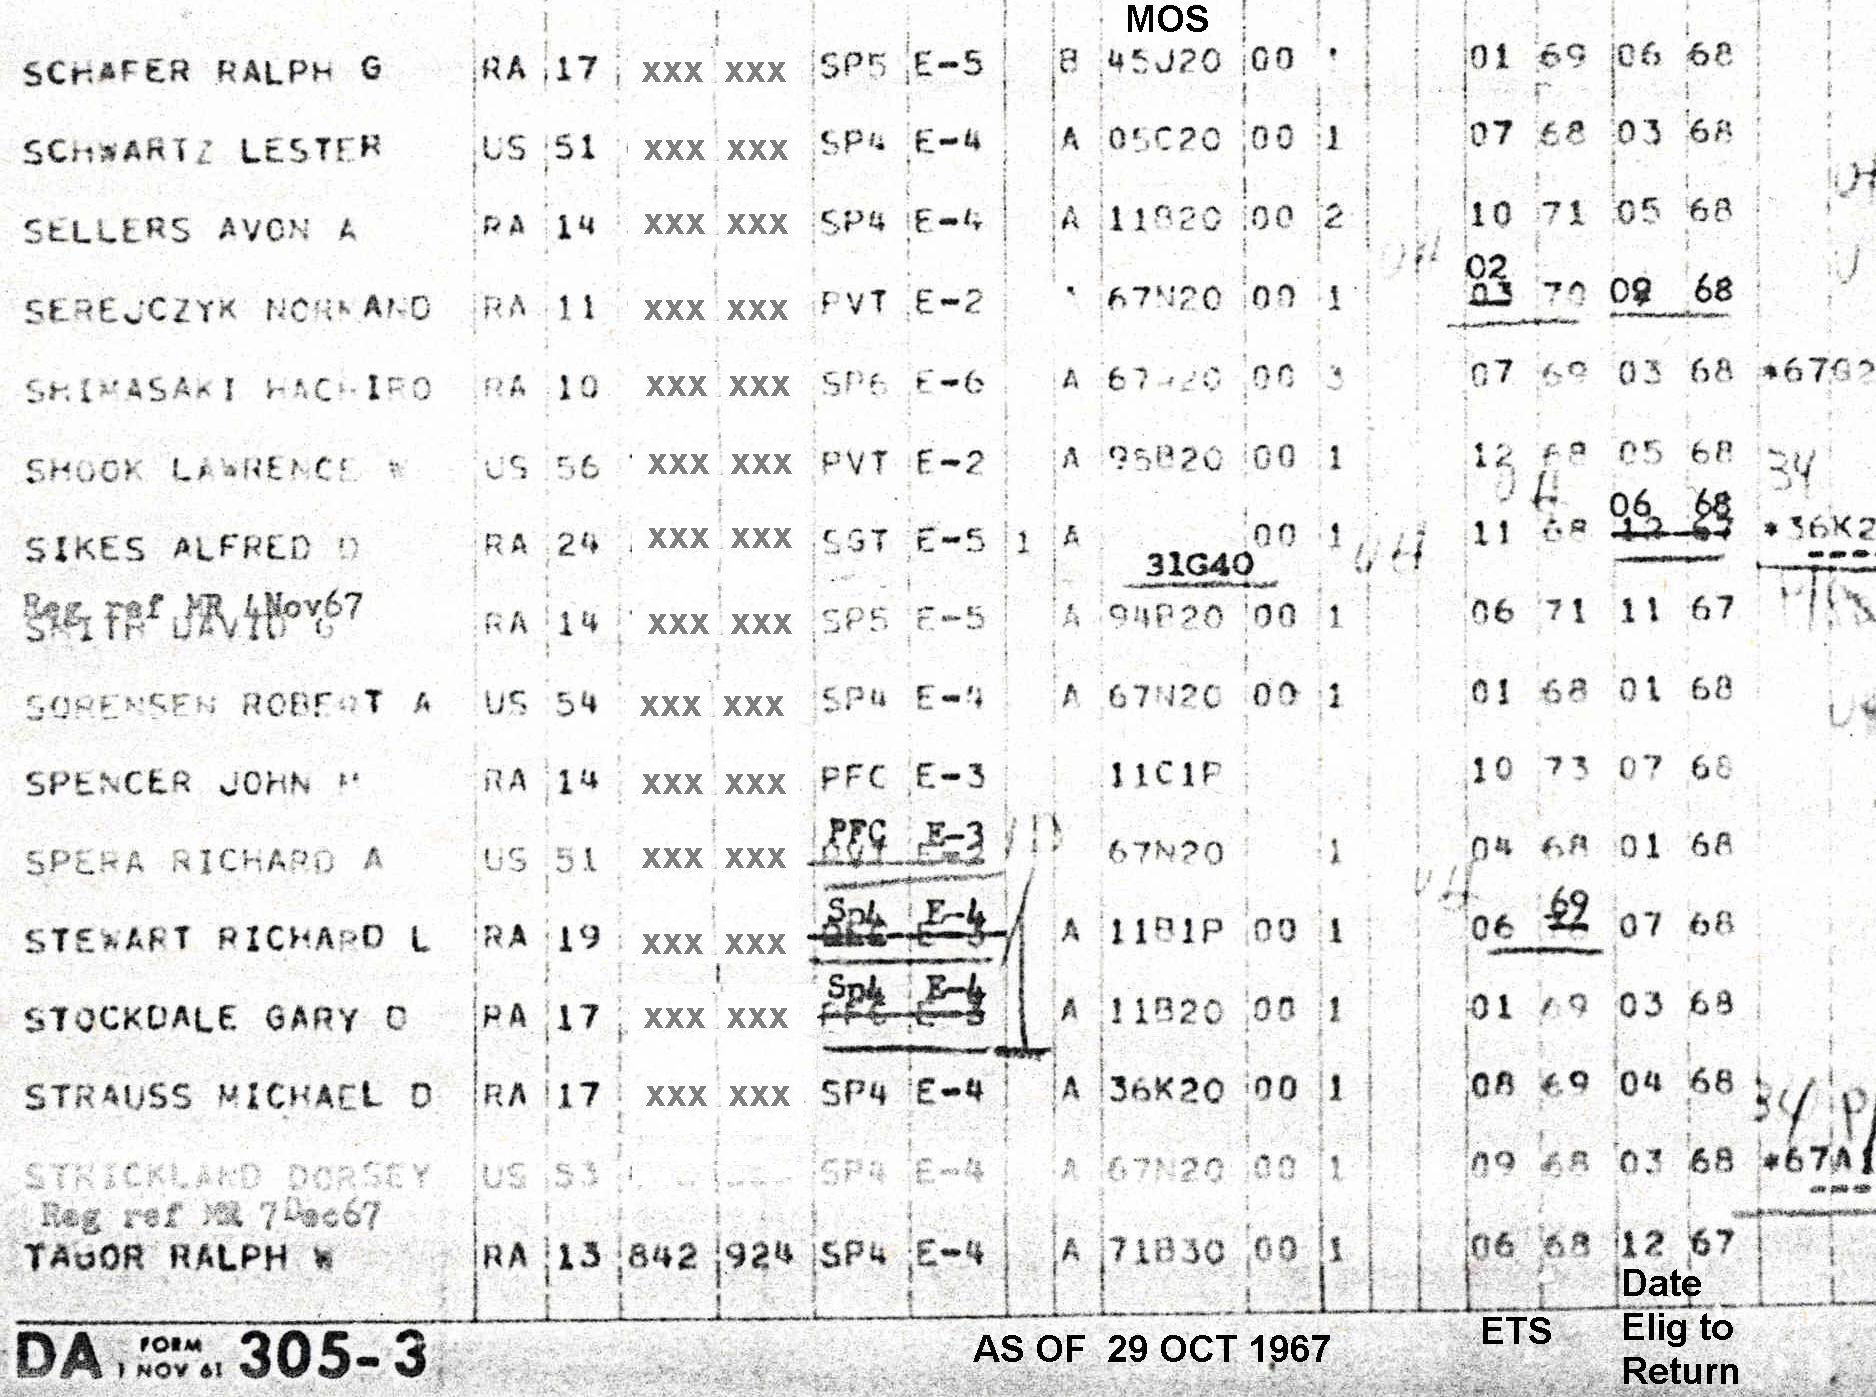 MOS
SCHAFER RALPH G RA 17 XXX XXX SP5 E-5 B 45J20 00 01 69 06 68
SCHWARTZ LESTER US 51 XXX XXX SP4 E-4 A 05C20 00 1 07 68 03 68
SELLERS AVON A RA 14 XXX XXX SP4 E-4 A 11B20 00 2 10 71 05 68
02
SEREJCZYK NORMAND RA 11 XXX XXX PVT E-2 67N20 00 1 03 70 09 68
SHIMASAKI HACHIRO RA 10 XXX XXX SP6 E-6 A 00 3 07 69 03 68 *67G2
SHOOK LAWRENCE W US 56 XXX XXX PVT E-2 A 95B20 00 1 12 68 05 68 34
06 68
SIKES ALFRED D RA 24 XXX XXX SGT E-5 1 A 00 1 11 68 12 67 *36K2
31G40
Reg ref MR 4Nov67
SMITH DAVID G RA 14 XXX XXX SP5 E-5 A 94B20 00 1 06 71 11 67
SORENSEN ROBERT A US 54 XXX XXX SP4 E-4 A 67N20 00 1 01 68 01 68
SPENCER JOHN RA 14 XXX XXX PFC E-3 11C1P 10 73 07 68
PFC E-3
SPERA RICHARD A US 51 XXX XXX 67N20 1 04 68 01 68
Sp4 E-4 69
STEWART RICHARD L RA 19 XXX XXX PFC E-3 A 11B1P 00 1 06 07 68
Sp4 E-4
STOCKDALE GARY D RA 17 XXX XXX PFC E-3 A 11B20 00 1 01 69 03 68
STRAUSS MICHAEL D RA 17 XXX XXX SP4 E-4 A 36K20 00 1 08 69 04 68 34
STRICKLAND DORSEY US 53 SP4 E-4 A 67N20 00 1 09 68 03 68 *67A1
Reg ref MR 7Dec67
TABOR RALPH W RA 13 842 924 SP4 E-4 A 71B30 00 1 06 68 12 67
DA FORM 1 NOV 61 305-3 AS OF 29 OCT 1967 ETS Date Elig to Return